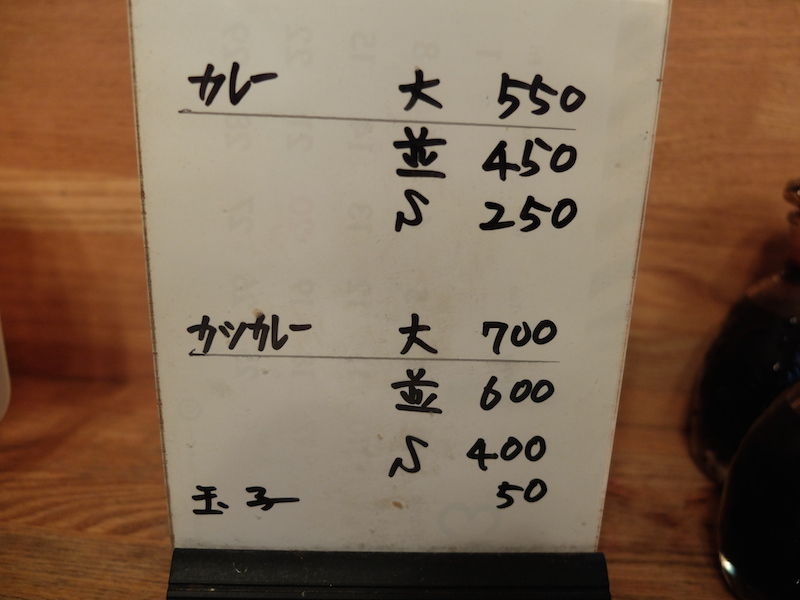 カレー 大 550
並 450
S 250
カツカレー 大 700
並 600
S 400
玉子 50